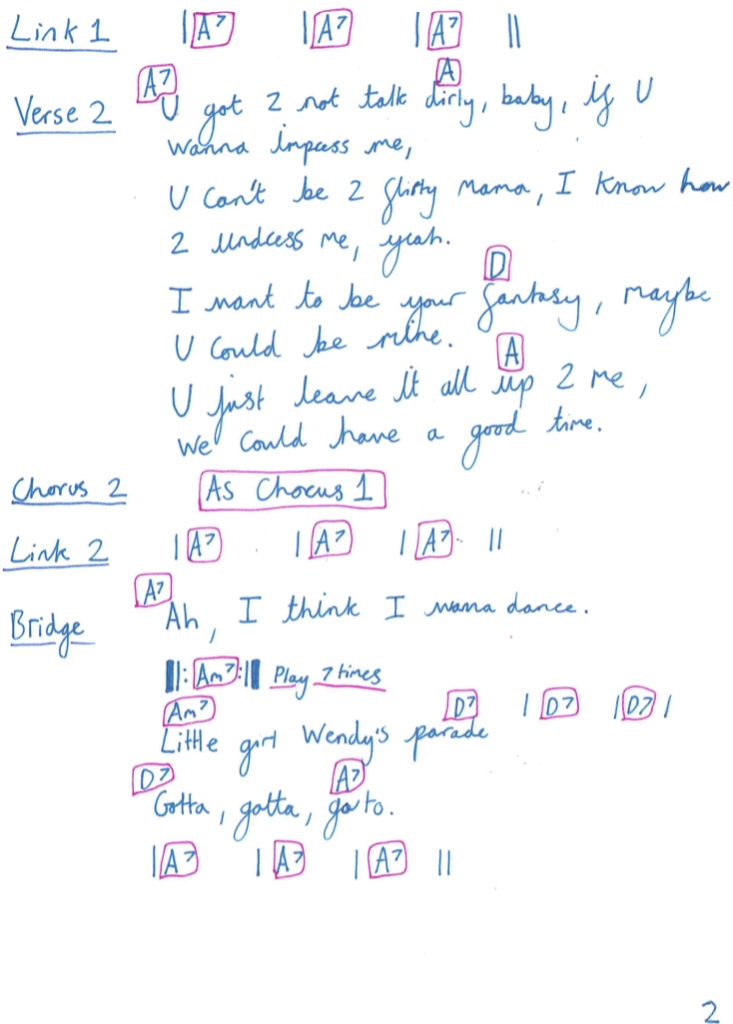 Link 1 | A7 | A7 | A7 ||
A7 A
Verse 2 U got 2 not talk dirty, baby, if U
wanna impress me,
U can't be 2 flirty mama, I know how
2 undress me, yeah.
D
I want to be your fantasy, maybe
U could be mine.
A
U just leave it all up 2 me,
We could have a good time.
Chorus 2 As Chorus 1
Link 2 | A7 | A7 | A7 ||
A7
Bridge Ah, I think I wanna dance.
||: Am7 :|| Play 7 times
Am7 D7 | D7 | D7 |
Little girl Wendy's parade
D7 A7
Gotta, gotta, gotto.
| A7 | A7 | A7 ||
2